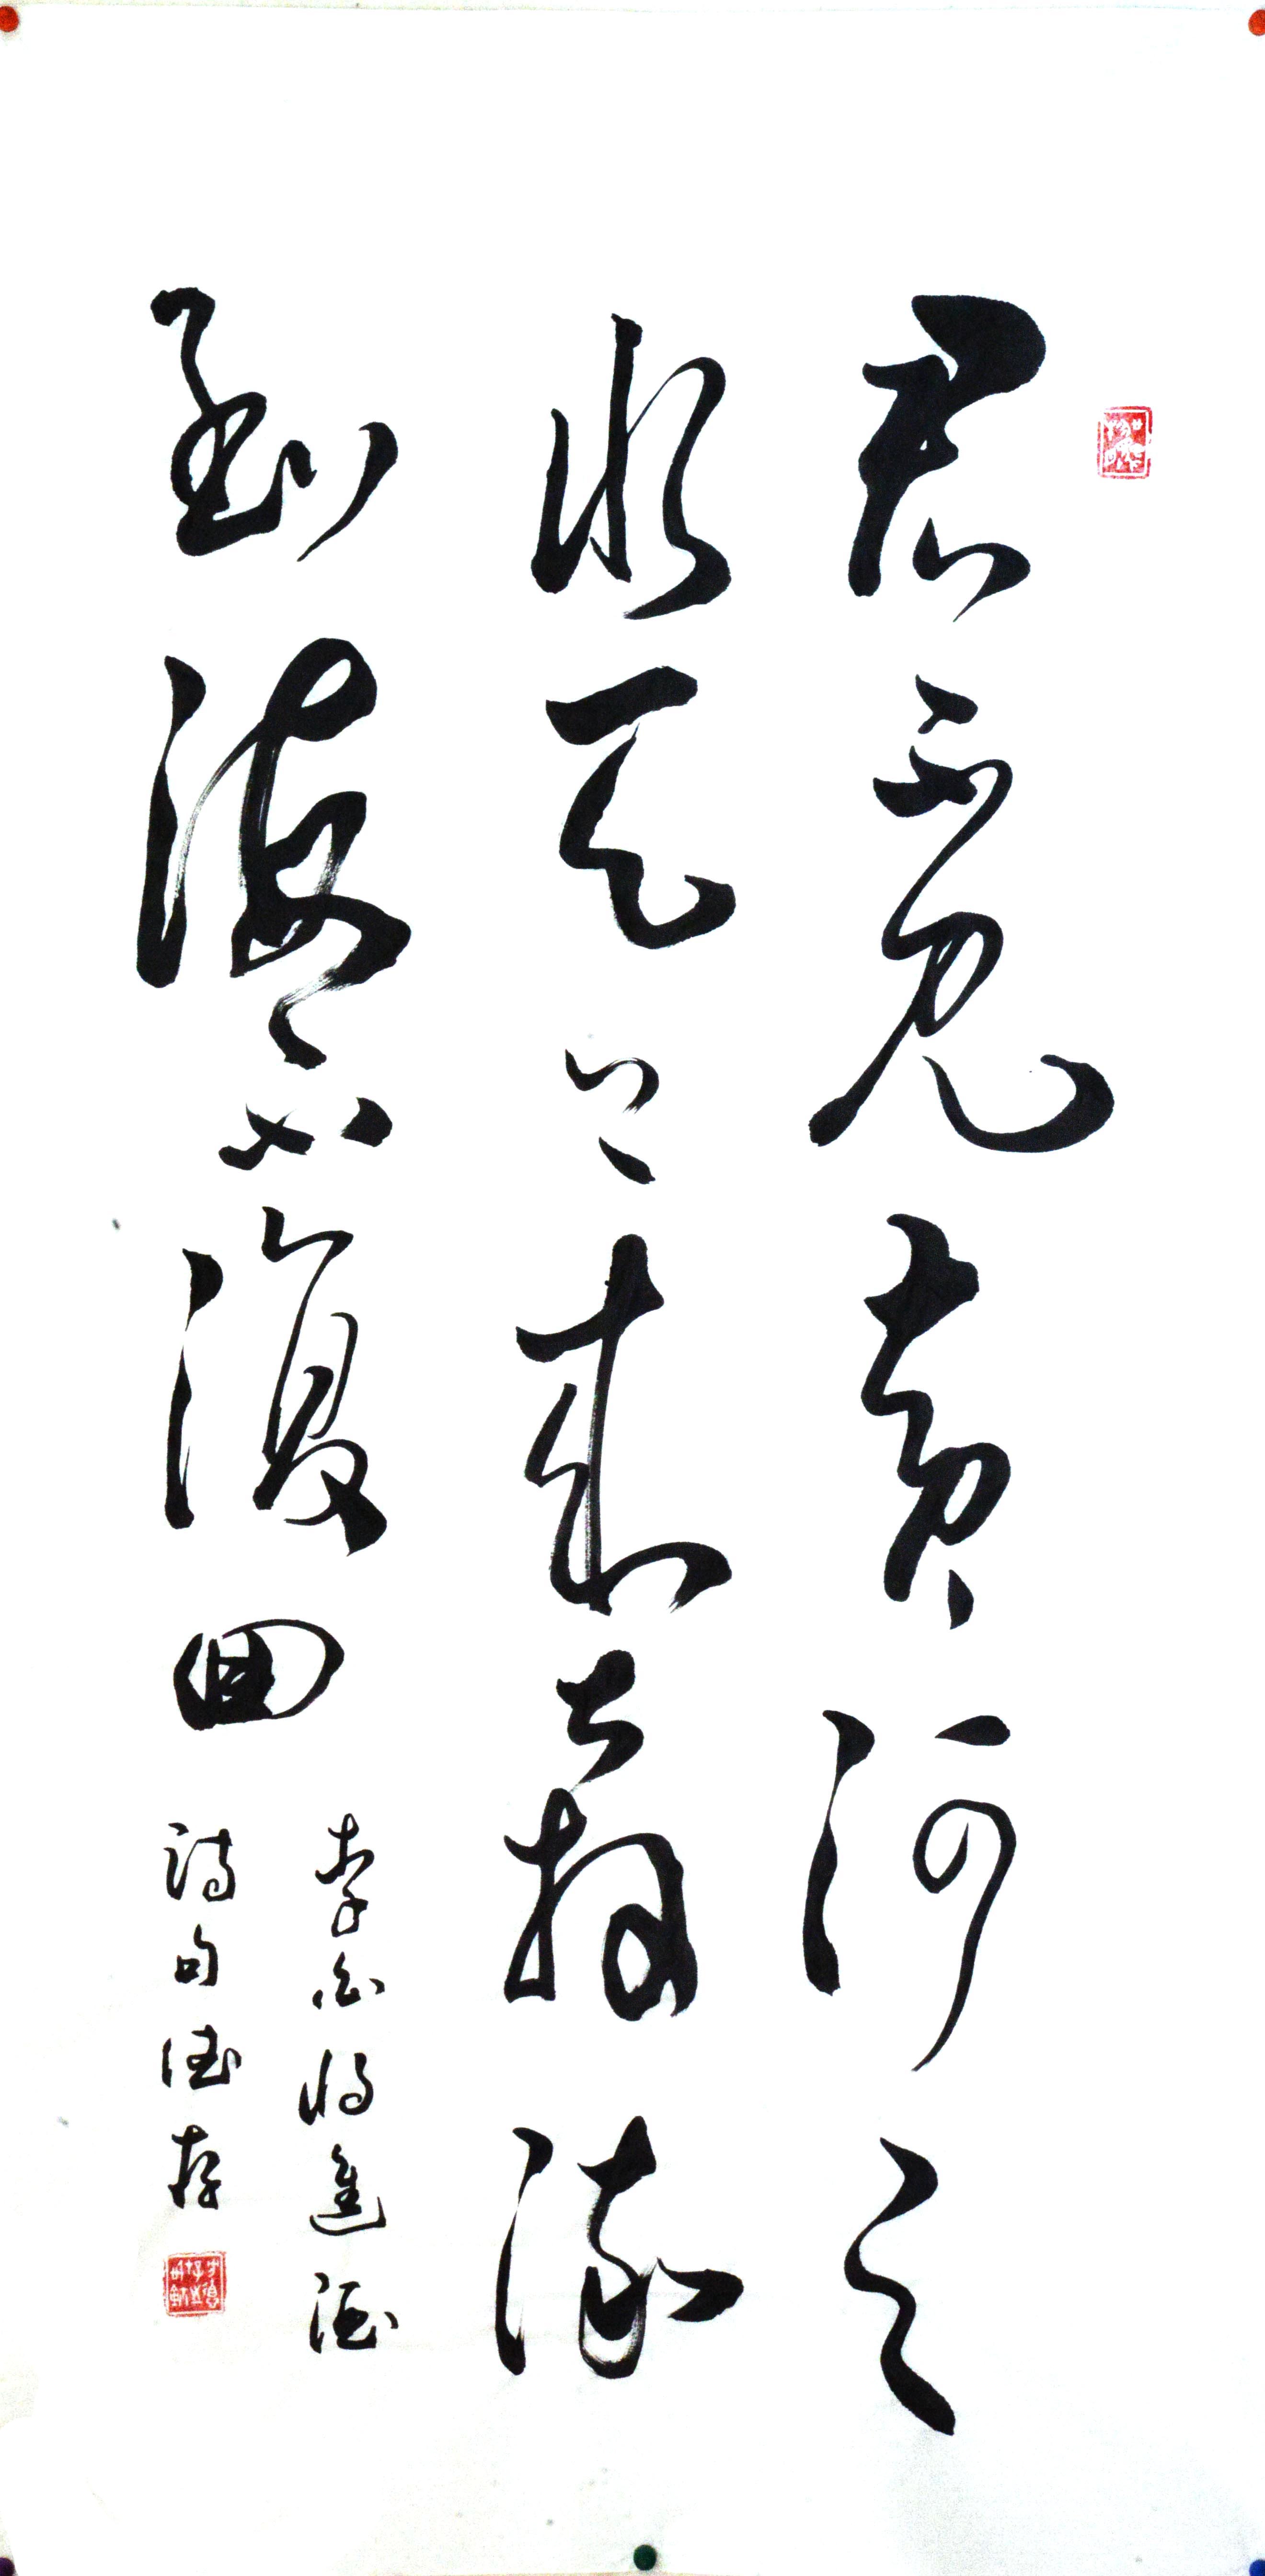 君不見黃河之
水天上來奔流
到海不復回
李白將進酒
詩句德存